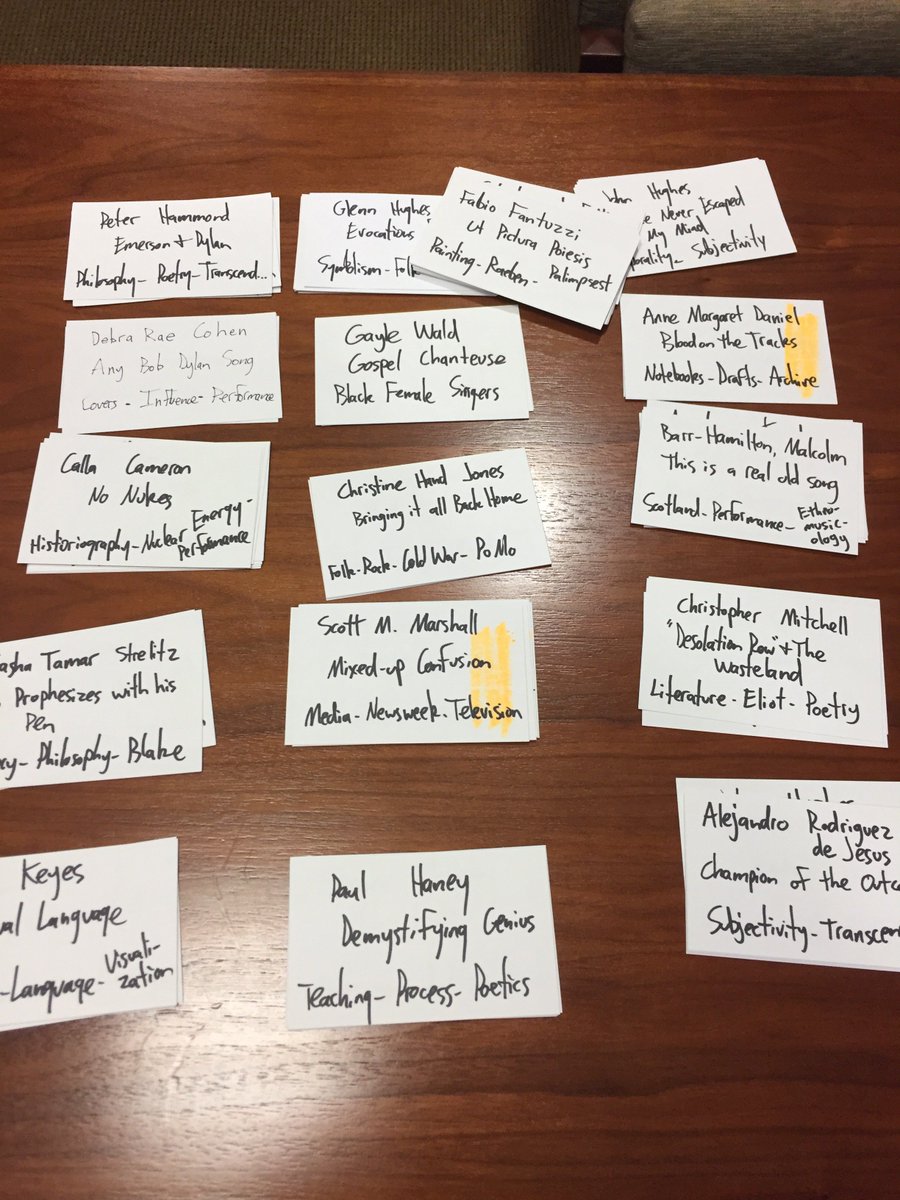 Peter Hammond
Emerson + Dylan
Philosophy - Poetry - Transcend...
Glenn Hughes
Evocations
Symbolism - Folk
Fabio Fantuzzi
Ut Pictura Poiesis
Painting - Raeben - Palimpsest
Hughes
Never Escaped
My Mind
Subjectivity
Debra Rae Cohen
Any Bob Dylan Song
Lovers - Influence - Performance
Gayle Wald
Gospel Chanteuse
Black Female Singers
Anne Margaret Daniel
Blood on the Tracks
Notebooks - Drafts - Archive
Calla Cameron
No Nukes
Historiography - Nuclear Energy -
Performance
Christine Hand Jones
Bringing it all Back Home
Folk-Rock - Cold War - PoMo
Barr-Hamilton, Malcolm
This is a real old song
Scotland - Performance - Ethno-
music-
ology
asha Tamar Strelitz
Prophesizes with his
Pen
cy - Philosophy - Blake
Scott M. Marshall
Mixed-up Confusion
Media - Newsweek - Television
Christopher Mitchell
"Desolation Row" + The
Wasteland
Literature - Eliot - Poetry
Keyes
al Language
- Language - Visuali-
zation
Paul Haney
Demystifying Genius
Teaching - Process - Poetics
Alejandro Rodriguez
de Jesus
Champion of the Outc
Subjectivity - Transcen